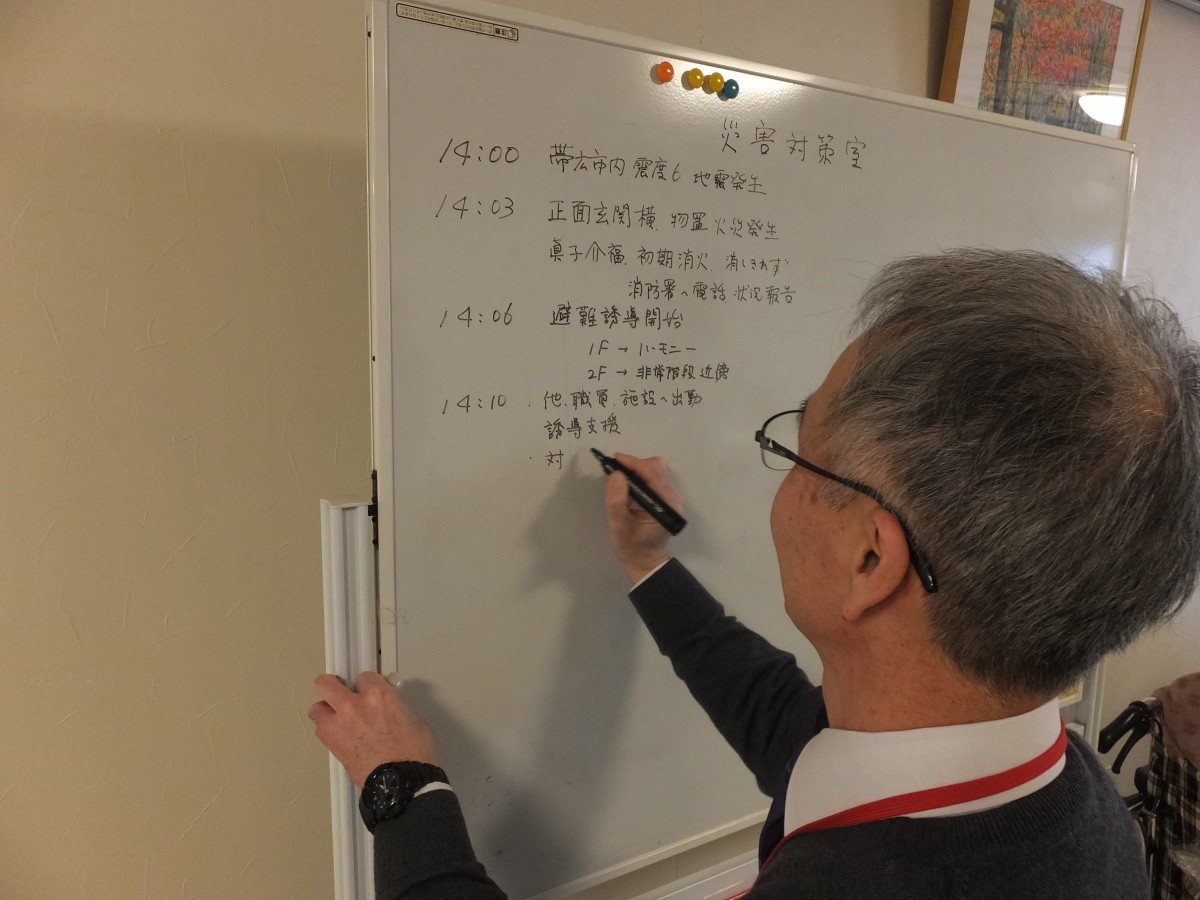 災害対策室
14:00 帯広市内 震度6 地震発生
14:03 正面玄関横、物置火災発生
眞子介福、初期消火、消しきれず
消防署へ電話 状況報告
14:06 避難誘導開始
1F → ハーモニー
2F → 非常階段近傍
14:10 ・他、職員、施設へ出勤
誘導支援
・対